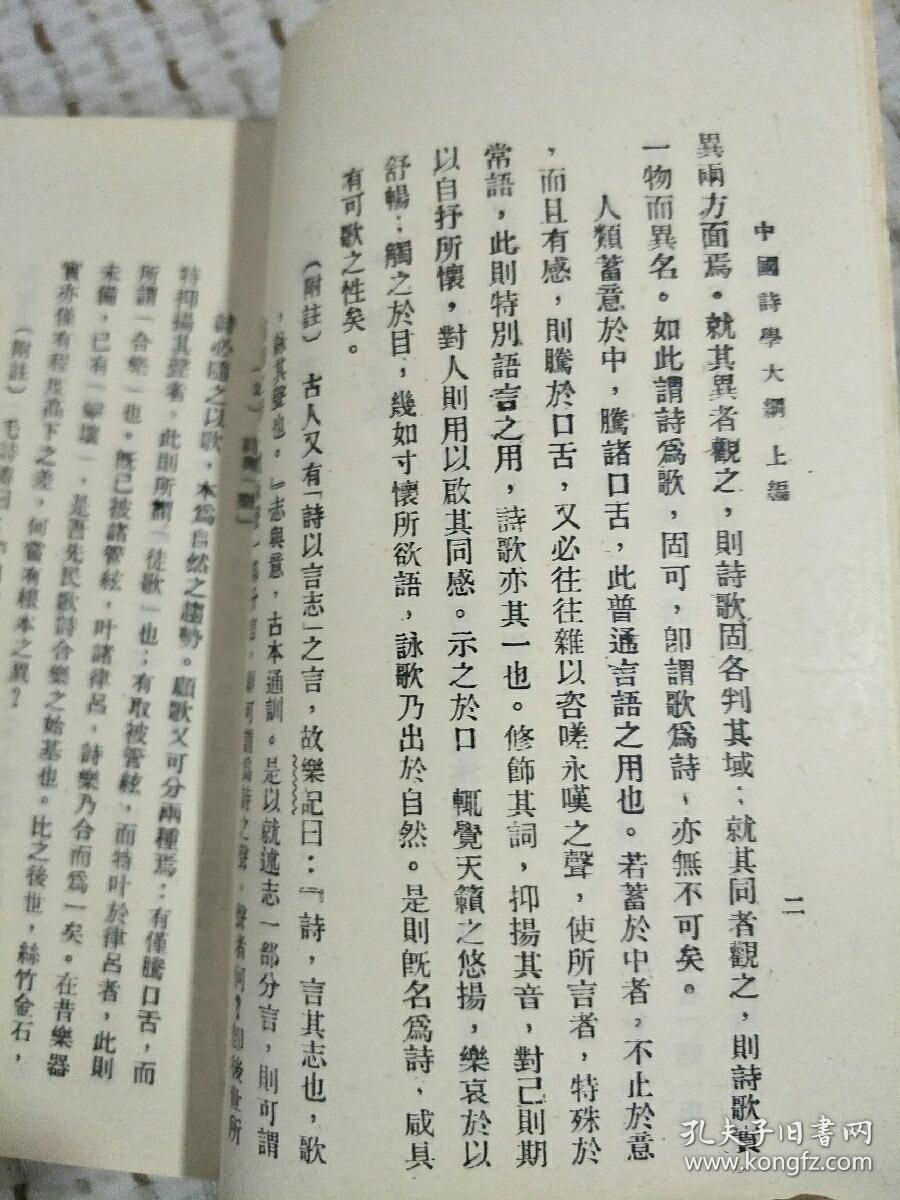 中國詩學大綱 上編
二
異兩方面焉。就其異者觀之，則詩歌固各判其域；就其同者觀之，則詩歌實
一物而異名。如此謂詩爲歌，固可，卽謂歌爲詩，亦無不可矣。
人類蓄意於中，騰諸口舌，此普通言語之用也。若蓄於中者，不止於意
，而且有感，則騰於口舌，又必往往雜以咨嗟永嘆之聲，使所言者，特殊於
常語，此則特別語言之用，詩歌亦其一也。修飾其詞，抑揚其音，對己則期
以自抒所懷，對人則用以啟其同感。示之於口 輒覺天籟之悠揚，樂哀於以
舒暢；觸之於目，幾如寸懷所欲語，詠歌乃出於自然。是則旣名爲詩，咸具
有可歌之性矣。
（附註） 古人又有「詩以言志」之言，故樂記曰：『詩，言其志也，歌
，詠其聲也。』志與意，古本通訓。是以就述志一部分言，則可謂
詩必隨之以歌，本爲自然之趨勢。顧歌又可分兩種焉：有僅騰口舌，而
特抑揚其聲者，此則所謂「徒歌」也；有取被管絃，而特叶於律呂者，此則
所謂「合樂」也。旣已被諸管絃，叶諸律呂，詩樂乃合而爲一矣。在昔樂器
未備，已有「擊壤」，是吾先民歌詩合樂之始基也。比之後世，絲竹金石，
實亦僅有程度高下之差，何嘗有根本之異？
（附註） 毛詩序曰：
孔夫子旧书网
www.kongfz.com